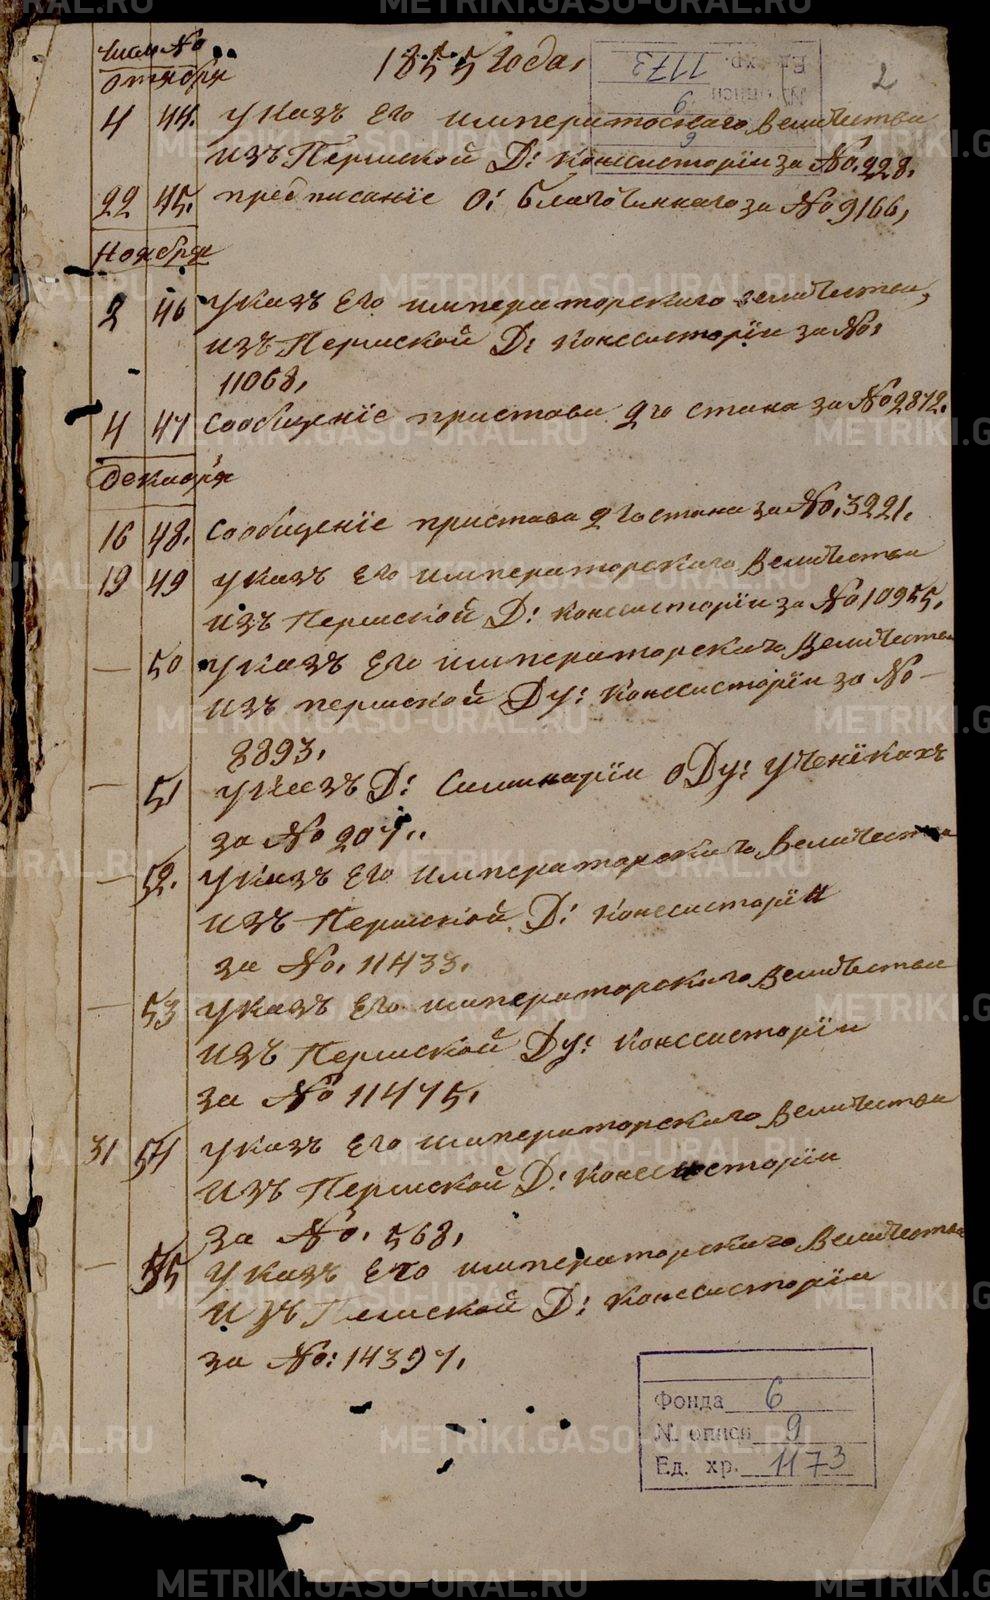 Числ No 1855 года,
Октября
4 44. Указъ Его императоскаго Величества
изъ Пермской Д: Консисторіи за No. 228.
22 45. предписаніе О: Благочиннаго за No 9166,
Ноября
2 46 Указъ Его императорскаго величества,
изъ Пермской Д: Консисторіи за No:
11068,
4 47 Сообщеніе пристава 2го стана за No 2872.
Декабря
16 48. Сообщеніе пристава 2го стана за No. 3221.
19 49 указъ Его императорскаго Величества
изъ Пермской Д: консисторіи за No 10955.
— 50 Указъ Его императорскаго Величества
изъ пермской Ду: Консисторіи за No –
8893.
— 51 указъ Д: Симинаріи о Ду: ученікахъ
за No 207..
— 52. Указъ Его императорскаго Величества
изъ Пермской Д: Консисторіи
за No. 11433.
— 53 Указъ Его императорскаго Величества
изъ Пермской Ду: Консисторіи
за No 11475.
31 54 Указъ Его императорскаго Величества
изъ Пермской Д: Консисторіи
за No. 568,
— 55 Указъ Его императорскаго Величества
изъ Пермской Д: Консисторіи
за No: 14397.
2
Ед. хр. 1173
N. описи 9
6
Фонда 6
N. описи 9
Ед. хр. 1173
METRIKI.GASO-URAL.RU